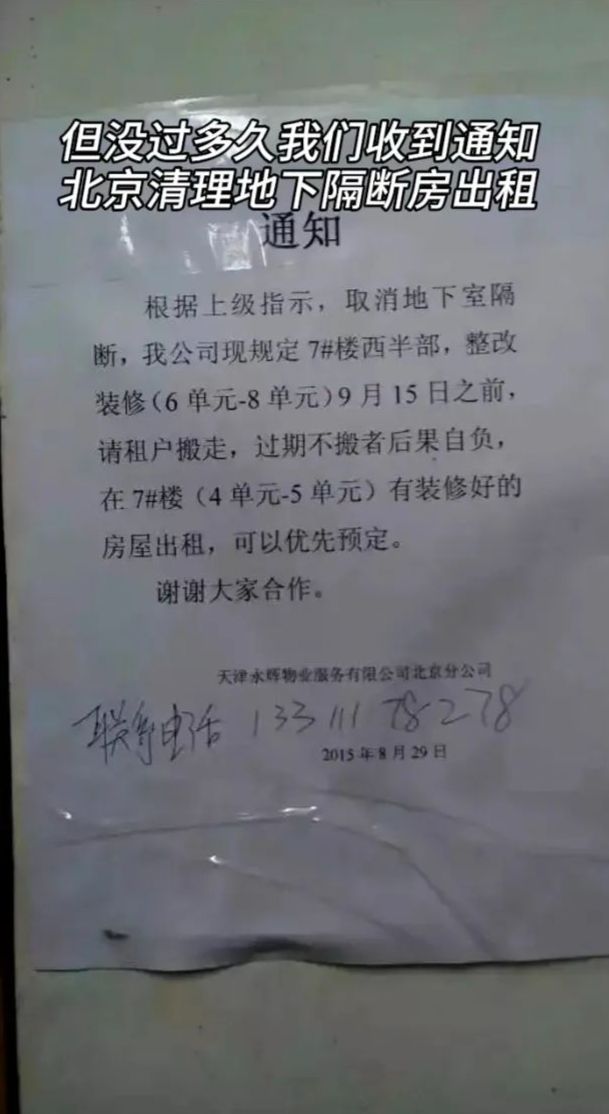 但没过多久我们收到通知
北京清理地下隔断房出租
通知
根据上级指示，取消地下室隔
断，我公司现规定 7#楼西半部，整改
装修（6 单元-8 单元）9 月 15 日之前，
请租户搬走，过期不搬者后果自负，
在 7#楼（4 单元-5 单元）有装修好的
房屋出租，可以优先预定。
谢谢大家合作。
天津永辉物业服务有限公司北京分公司
联系电话 133 111 78278
2015 年 8 月 29 日